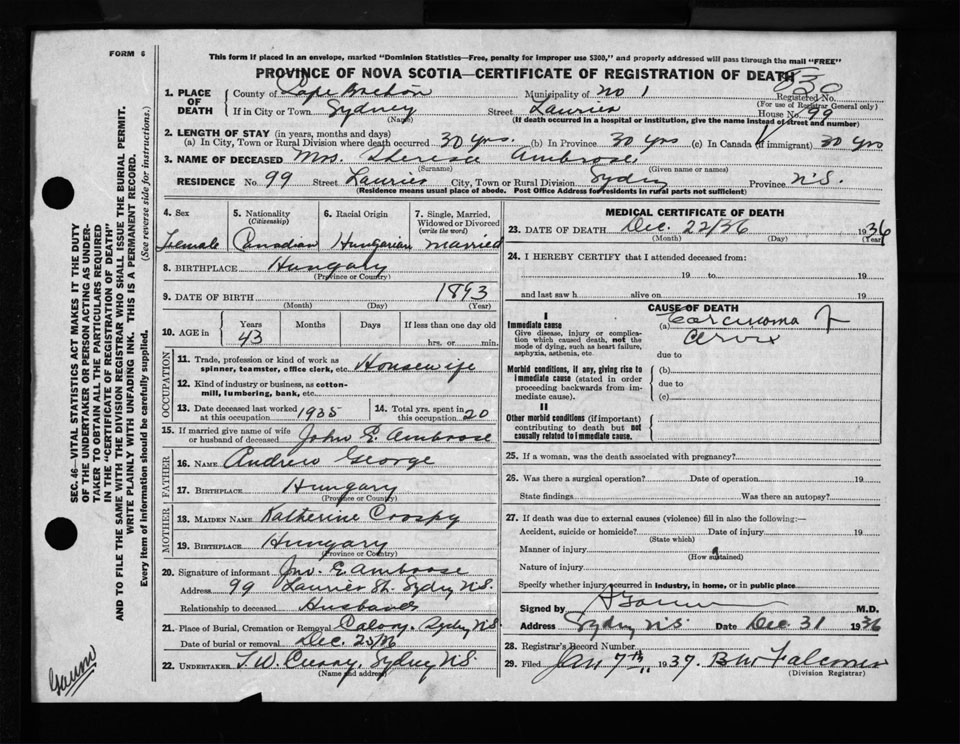 FORM 6
This form if placed in an envelope, marked "Dominion Statistics—Free, penalty for improper use $300," and properly addressed will pass through the mail "FREE"
PROVINCE OF NOVA SCOTIA—CERTIFICATE OF REGISTRATION OF DEATH
830
Registered No.
(For use of Registrar General only)
1. PLACE OF DEATH
County of Cape Breton Municipality of No 1
If in City or Town Sydney Street Laurier House No. 99
(Name) (If death occurred in a hospital or institution, give the name instead of street and number)
2. LENGTH OF STAY (in years, months and days)
(a) In City, Town or Rural Division where death occurred 30 yrs. (b) In Province 30 yrs (c) In Canada (if immigrant) 30 yrs
3. NAME OF DECEASED Mrs. Theresa Ambrose
(Surname) (Given name or names)
RESIDENCE No. 99 Street Laurier City, Town or Rural Division Sydney Province N.S.
(Residence means usual place of abode. Post Office Address for residents in rural parts not sufficient)
4. Sex
Female
5. Nationality (Citizenship)
Canadian
6. Racial Origin
Hungarian
7. Single, Married, Widowed or Divorced (write the word)
Married
8. BIRTHPLACE Hungary
(Province or Country)
9. DATE OF BIRTH 1893
(Month) (Day) (Year)
10. AGE in Years Months Days If less than one day old
43 hrs. or min.
OCCUPATION
11. Trade, profession or kind of work as spinner, teamster, office clerk, etc. Housewife
12. Kind of industry or business, as cotton-mill, lumbering, bank, etc.
13. Date deceased last worked at this occupation 1935
14. Total yrs. spent in this occupation 20
15. If married give name of wife or husband of deceased John E. Ambrose
FATHER
16. NAME Andrew George
17. BIRTHPLACE Hungary
(Province or Country)
MOTHER
18. MAIDEN NAME Katherine
19. BIRTHPLACE Hungary
(Province or Country)
20. Signature of informant Jno. E. Ambrose
Address 99 Laurier St. Sydney N.S.
Relationship to deceased Husband
21. Place of Burial, Cremation or Removal Sydney N.S.
Date of burial or removal Dec.
22. UNDERTAKER T. W. Curry, Sydney N.S.
(Name and address)
MEDICAL CERTIFICATE OF DEATH
23. DATE OF DEATH Dec. 22/36 1936
(Month) (Day) (Year)
24. I HEREBY CERTIFY that I attended deceased from:
19 to 19
and last saw h alive on 19
CAUSE OF DEATH
I
Immediate cause
Give disease, injury or complication which caused death, not the mode of dying, such as heart failure, asphyxia, asthenia, etc.
(a) Carcinoma of
Cervix
due to
Morbid conditions, if any, giving rise to immediate cause (stated in order proceeding backwards from immediate cause).
(b)
due to
(c)
II
Other morbid conditions (if important) contributing to death but not causally related to immediate cause.
25. If a woman, was the death associated with pregnancy?
26. Was there a surgical operation? Date of operation 19
State findings Was there an autopsy?
27. If death was due to external causes (violence) fill in also the following:—
Accident, suicide or homicide? Date of injury 19
(State which)
Manner of injury
(How sustained)
Nature of injury
Specify whether injury occurred in industry, in home, or in public place
Signed by M.D.
Address Sydney N.S. Date Dec 31 1936
28. Registrar's Record Number
29. Filed Jan 7th 1937 B W Falconer
(Division Registrar)
SEC. 46—VITAL STATISTICS ACT MAKES IT THE DUTY
OF THE UNDERTAKER OR PERSON ACTING AS UNDER-
TAKER TO OBTAIN ALL THE PARTICULARS REQUIRED
IN THE "CERTIFICATE OF REGISTRATION OF DEATH"
AND TO FILE THE SAME WITH THE DIVISION REGISTRAR WHO SHALL ISSUE THE BURIAL PERMIT.
WRITE PLAINLY WITH UNFADING INK. THIS IS A PERMANENT RECORD.
Every item of information should be carefully supplied. (See reverse side for instructions.)